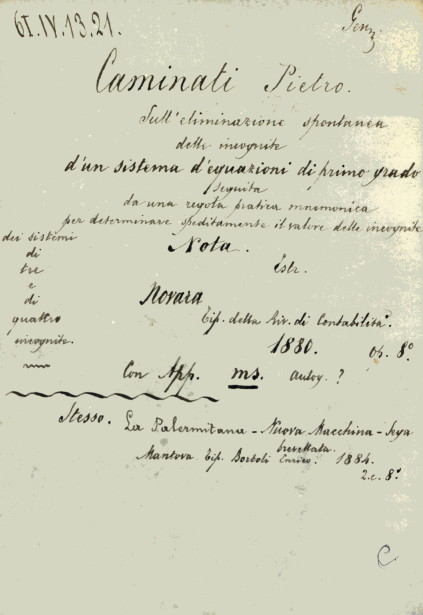 61.IV.13.21.
Caminati Pietro.
Sull'eliminazione spontanea
delle incognite
d'un sistema d'equazioni di primo grado
seguita
da una regola pratica mnemonica
per determinare speditamente il valore delle incognite
dei sistemi
di
tre
e
di
quattro
incognite.
Nota.
Estr.
Novara
Tip. della Riv. di Contabilità.
1880. 8°
Con App. ms. autog. ?
Stesso. La Palermitana - Nuova Macchina - Sega
brevettata.
Mantova Tip. Bortoli Enrico. 1884.
2.c. 8°
C